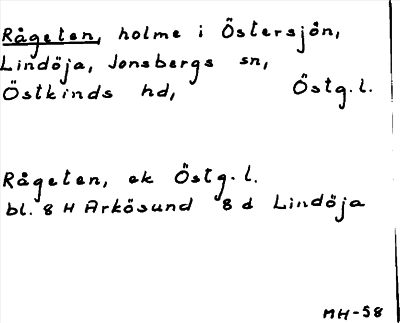 Rågeten, holme i Östersjön,
Lindöja, Jonsbergs sn,
Östkinds hd, Östg.l.
Rågeten, ek Östg.l.
bl. 8 H Arkösund 8 d Lindöja
MH-58